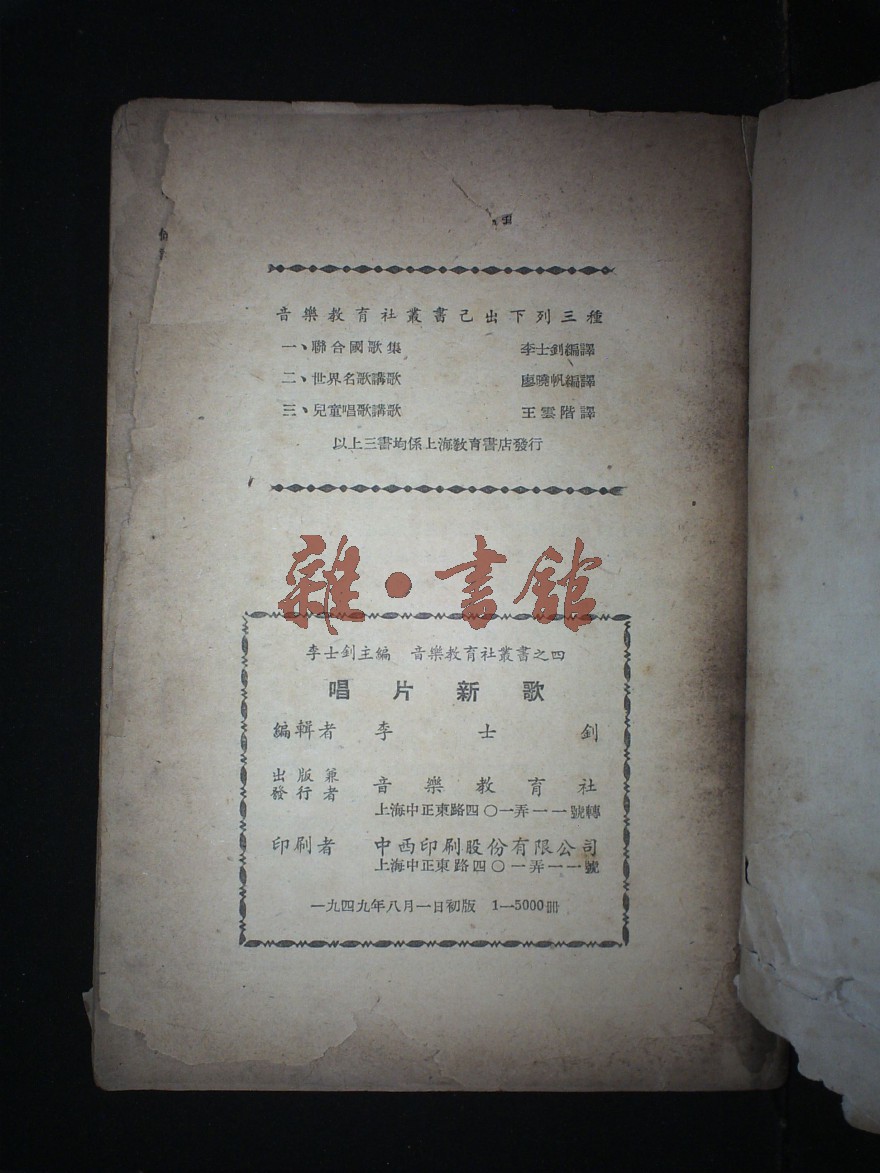 音樂教育社叢書己出下列三種
一、聯合國歌集 李士釗編譯
二、世界名歌講歌 廖曉帆編譯
三、兒童唱歌講歌 王雲階譯
以上三書均係上海教育書店發行
雜·書館
李士釗主編 音樂教育社叢書之四
唱片新歌
編輯者 李士釗
出版兼發行者 音樂教育社
上海中正東路四〇一弄一一號轉
印刷者 中西印刷股份有限公司
上海中正東路四〇一弄一一號
一九四九年八月一日初版 1—5000冊